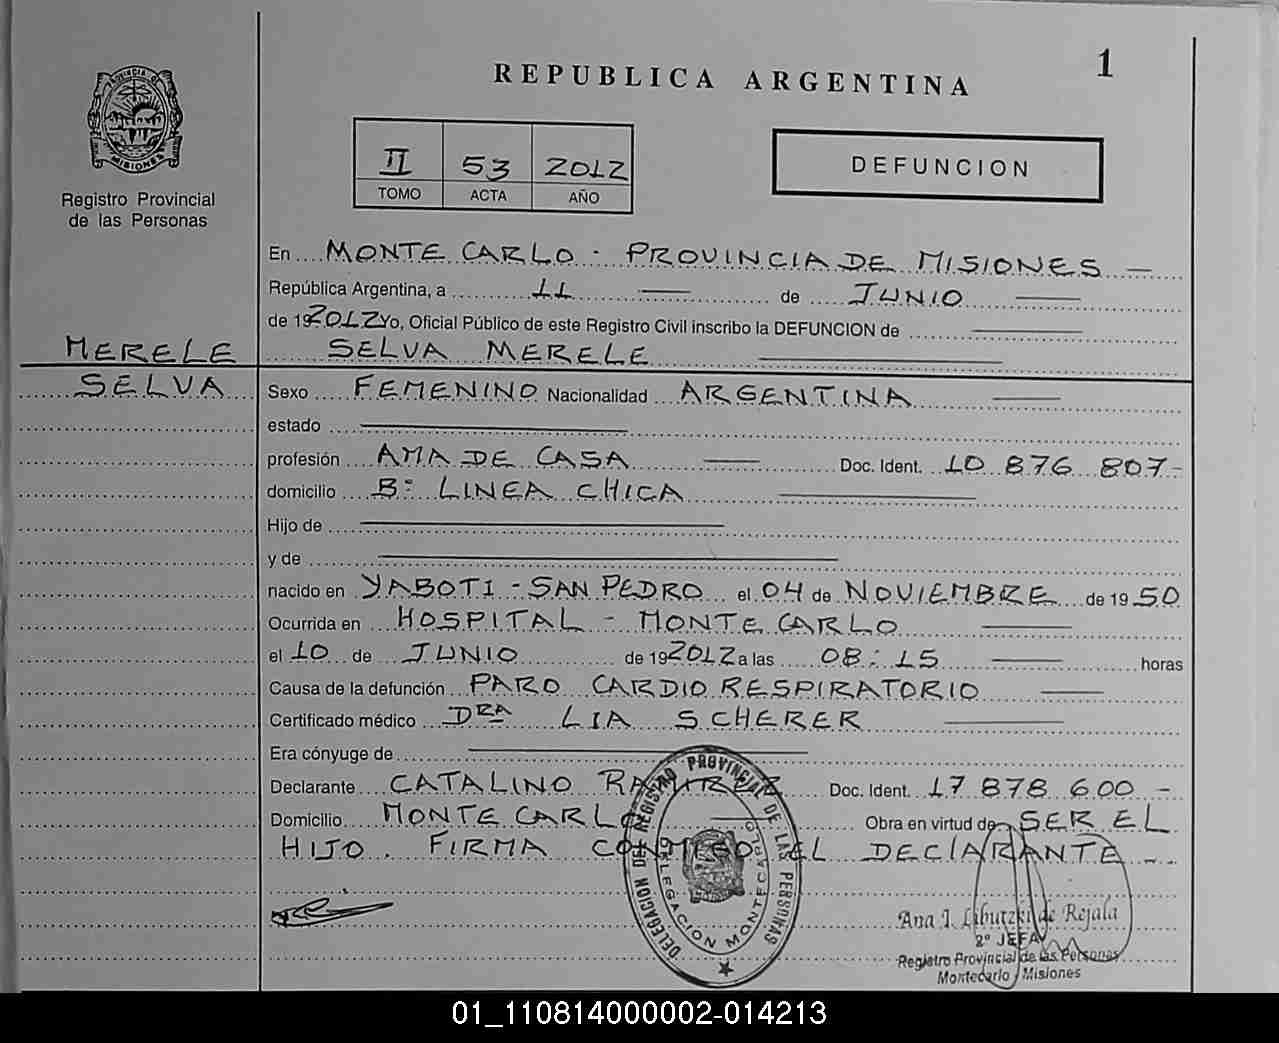 REPUBLICA ARGENTINA
1
PROVINCIA DE MISIONES
Registro Provincial
de las Personas
II 53 2012
TOMO ACTA AÑO
DEFUNCION
En MONTE CARLO - PROVINCIA DE MISIONES —
República Argentina, a 11 — de JUNIO —
de 192012 Yo, Oficial Público de este Registro Civil inscribo la DEFUNCION de —
MERELE
SELVA MERELE —
SELVA
Sexo FEMENINO Nacionalidad ARGENTINA —
estado —
profesión AMA DE CASA — Doc. Ident. 10 876 807-
domicilio B: LINEA CHICA —
Hijo de —
y de —
nacido en YABOTI - SAN PEDRO el 04 de NOVIEMBRE de 19 50
Ocurrida en HOSPITAL - MONTE CARLO —
el 10 de JUNIO de 192012 a las 08:15 — horas
Causa de la defunción PARO CARDIO RESPIRATORIO —
Certificado médico DRA LIA SCHERER —
Era cónyuge de —
Declarante CATALINO RAMIREZ Doc. Ident. 17 878 600 -
Domicilio MONTE CARLO — Obra en virtud de SER EL
HIJO. FIRMA CONMIGO EL DECLARANTE - -
DELEGACION DEL REGISTRO PROVINCIAL DE LAS PERSONAS
DELEGACION MONTECARLO
Ana J. Libutzki de Rejala
2º JEFA
Registro Provincial de las Personas
Montecarlo - Misiones
01_110814000002-014213